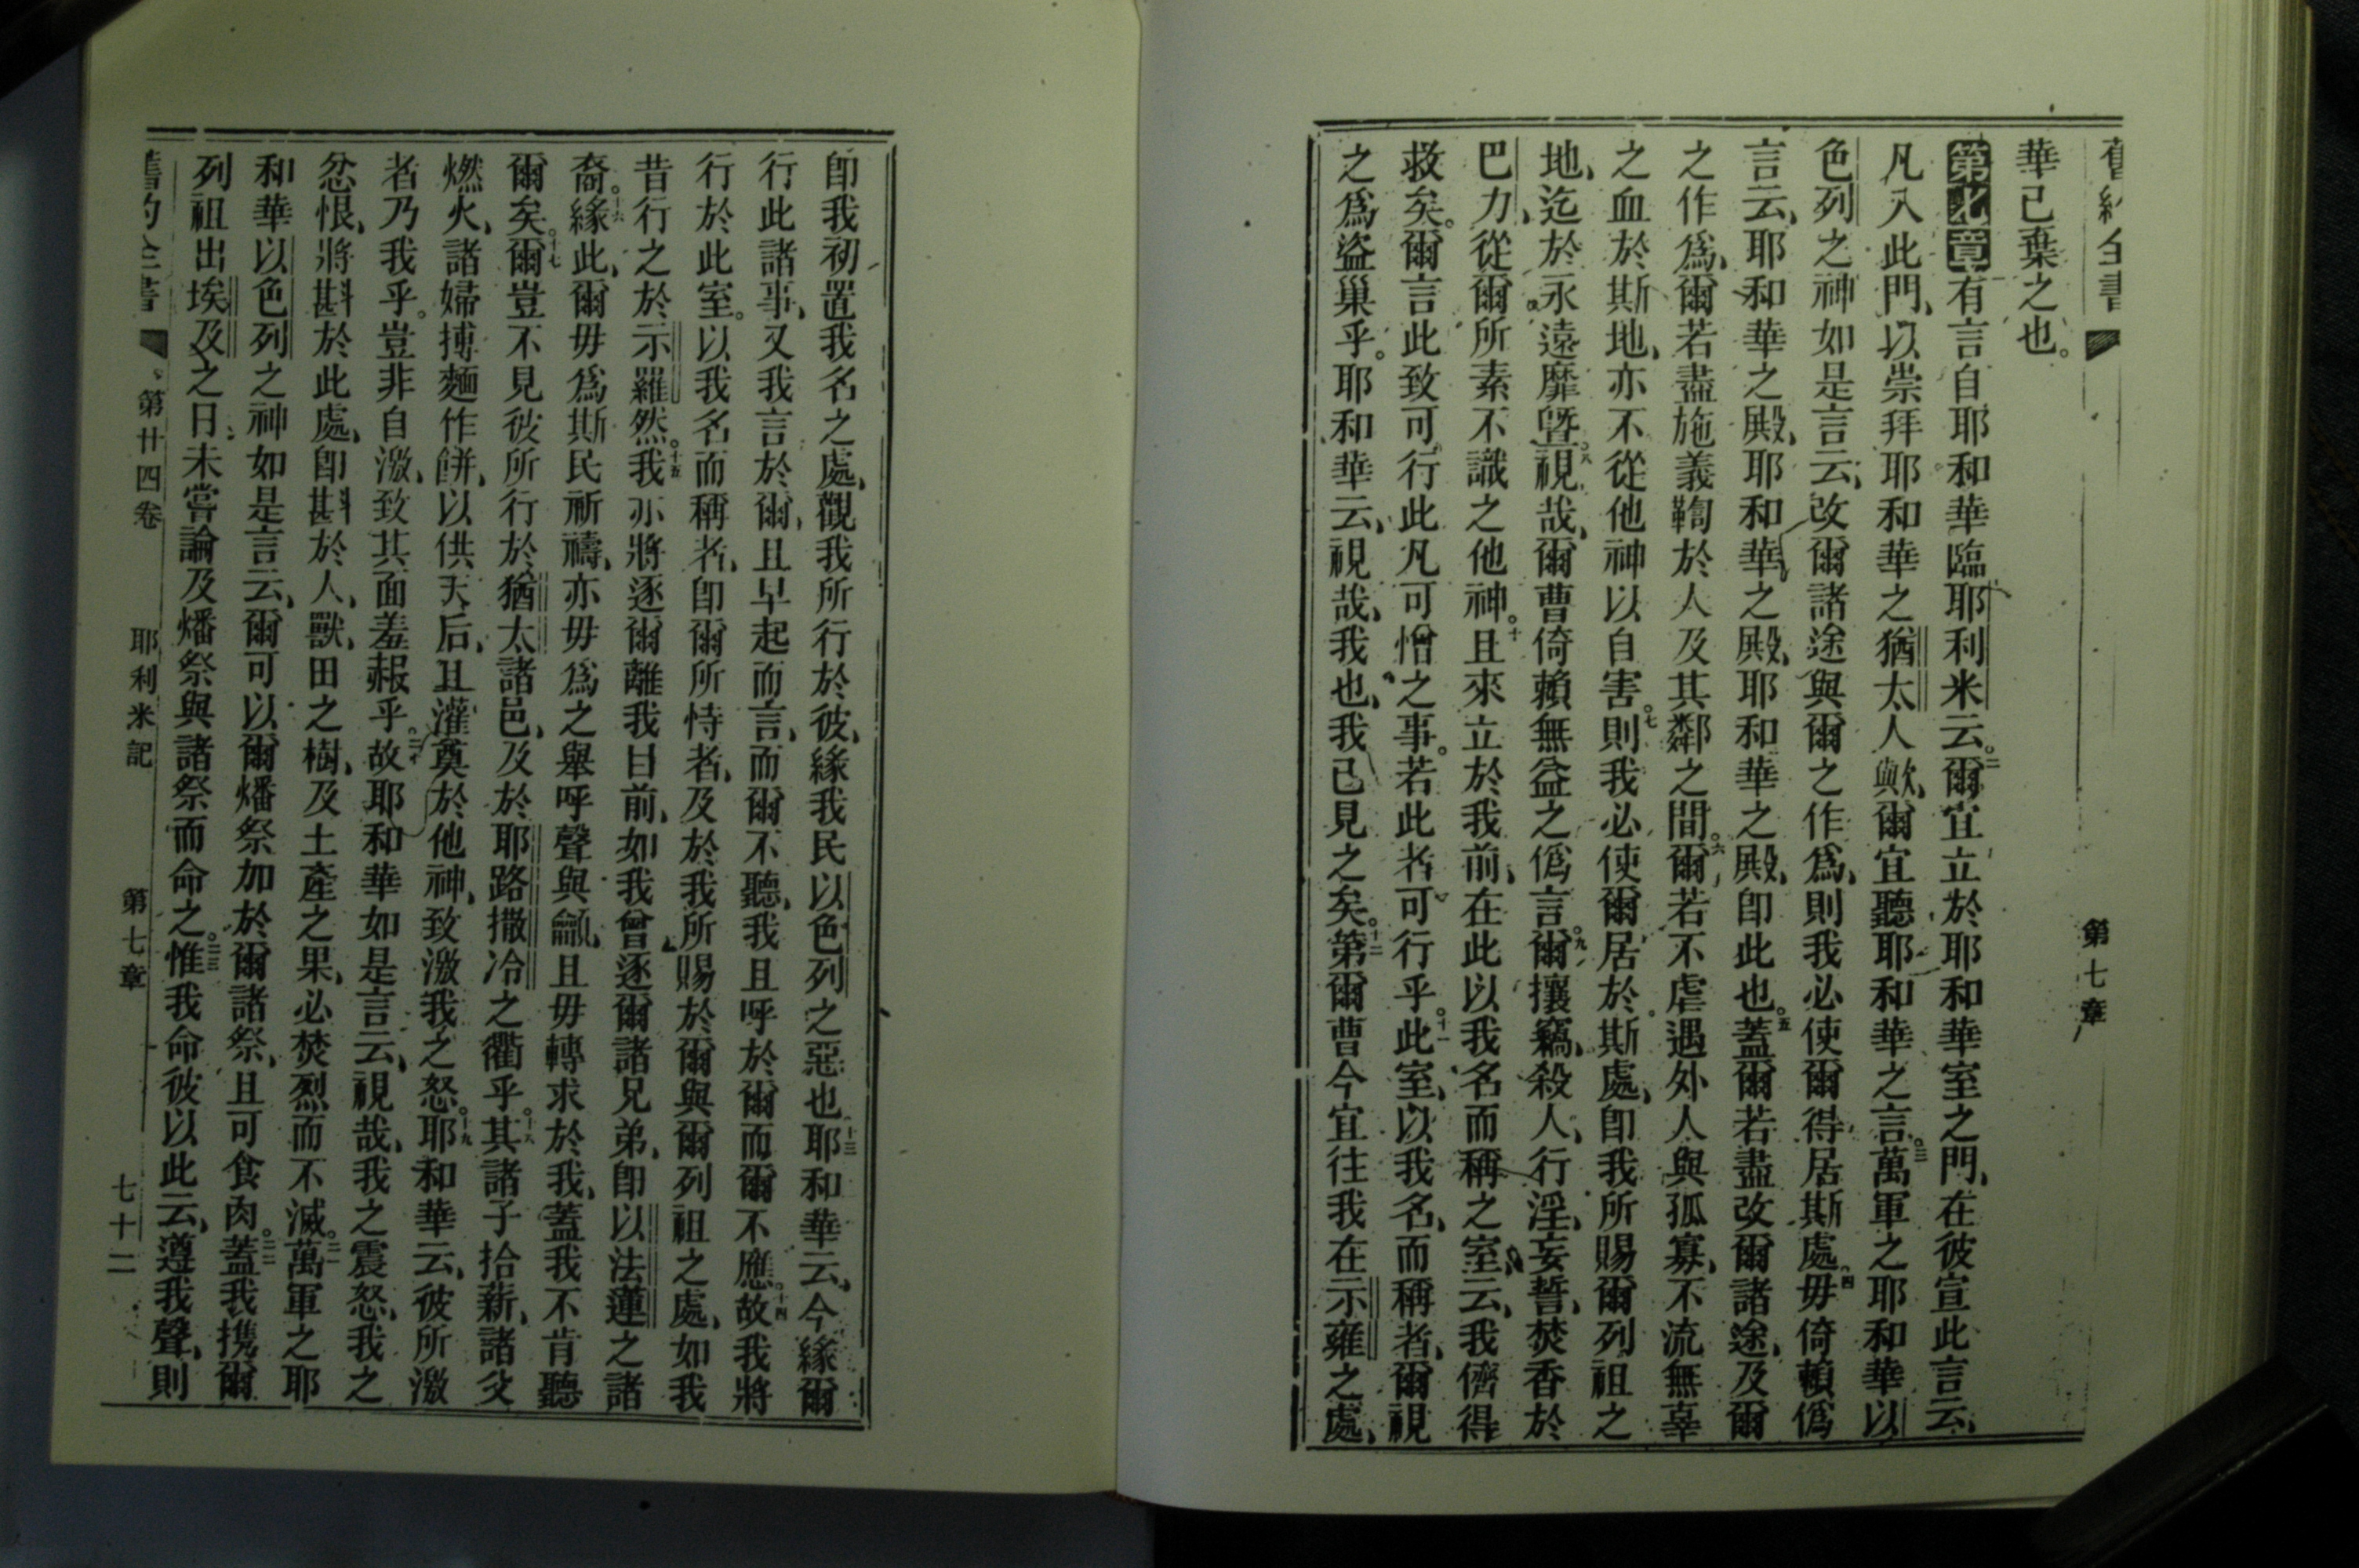 舊約全書 第七章
華已棄之也。
第七章有言自耶和華臨耶利米云。二爾宜立於耶和華室之門、在彼宣此言云、
凡入此門、以崇拜耶和華之猶太人歟、爾宜聽耶和華之言。三萬軍之耶和華以
色列之神如是言云、改爾諸途與爾之作爲、則我必使爾得居斯處。四毋倚賴僞
言云、耶和華之殿、耶和華之殿、耶和華之殿、卽此也。五蓋爾若盡改爾諸途、及爾
之作爲、爾若盡施義鞫於人及其鄰之間。六爾若不虐遇外人與孤寡、不流無辜
之血於斯地、亦不從他神以自害。七則我必使爾居於斯處、卽我所賜爾列祖之
地、迄於永遠靡曁。八視哉、爾曹倚賴無益之僞言。九爾攘竊、殺人、行淫、妄誓、焚香於
巴力、從爾所素不識之他神。十且來立於我前、在此以我名而稱之室、云、我儕得
救矣。爾言此致可行此凡可憎之事。若此者可行乎。十一此室、以我名、而稱者、爾視
之爲盜巢乎。耶和華云、視哉、我也、我已見之矣。十二第爾曹今宜往我在示雍之處、
卽我初置我名之處、觀我所行於彼、緣我民以色列之惡也。十三耶和華云、今緣爾
行此諸事、又我言於爾、且早起而言、而爾不聽、我且呼於爾而爾不應。十四故我將
行於此室。以我名而稱者、卽爾所恃者、及於我所賜於爾與爾列祖之處、如我
昔行之於示羅然。十五我亦將逐爾離我目前、如我曾逐爾諸兄弟、卽以法蓮之諸
裔。十六緣此、爾毋爲斯民祈禱、亦毋爲之舉呼聲與籲、且毋轉求於我、蓋我不肯聽
爾矣。十七爾豈不見彼所行於猶太諸邑、及於耶路撒冷之衢乎。十八其諸子拾薪、諸父
燃火、諸婦摶麵作餅、以供天后、且灌奠於他神、致激我之怒。十九耶和華云、彼所激
者乃我乎。豈非自激、致其面羞赧乎。二十故耶和華如是言云、視哉、我之震怒、我之
忿恨、將斟於此處、卽斟於人、獸、田之樹、及土產之果、必焚烈而不滅。二一萬軍之耶
和華以色列之神如是言云、爾可以爾燔祭加於爾諸祭、且可食肉。二二蓋我攜爾
列祖出埃及之日、未嘗論及燔祭與諸祭而命之。二三惟我命彼以此云、遵我聲、則
舊約全書 第廿四卷 耶利米記 第七章 七十二